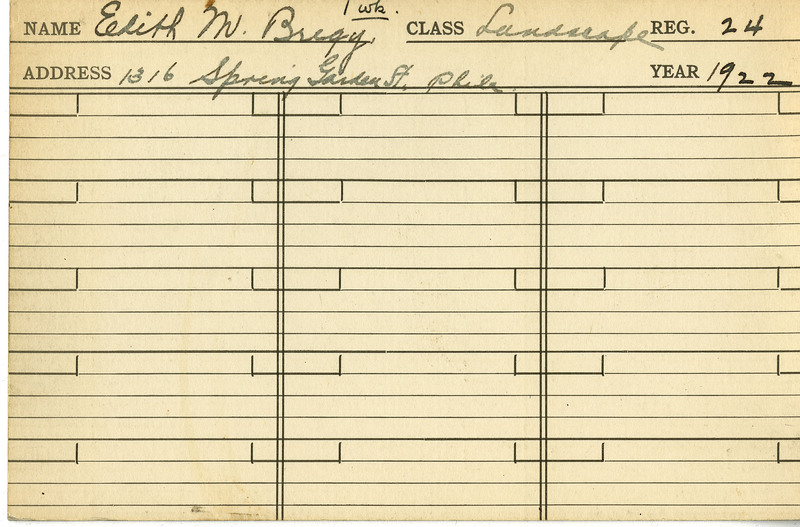 1 wk.
NAME Edith M. Bregy. CLASS Landscape REG. 24
ADDRESS 1316 Spring Garden St. Phila. YEAR 1922